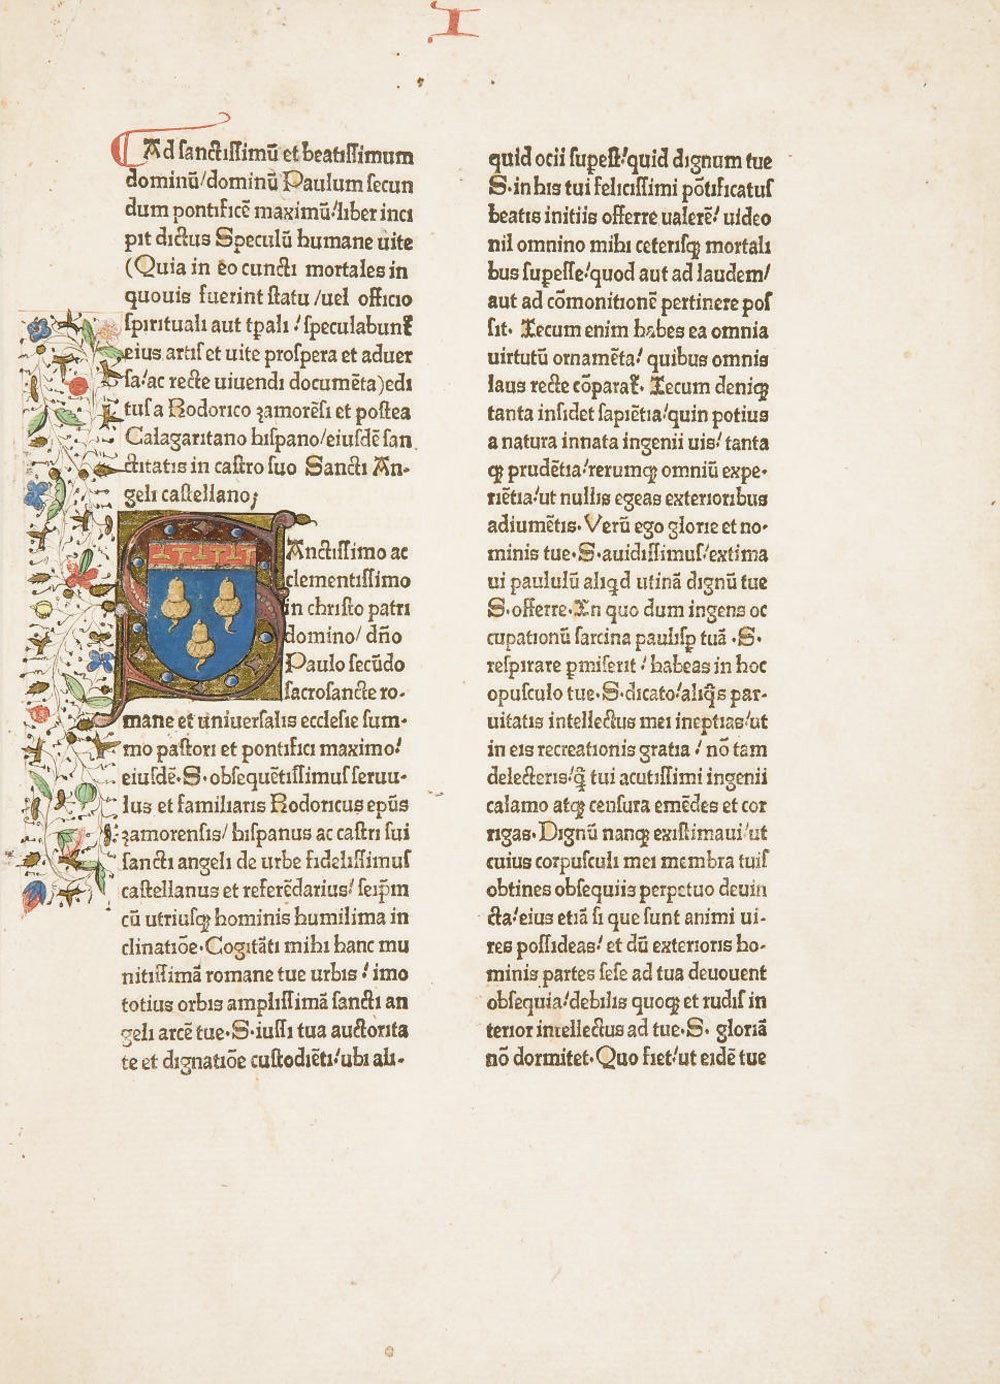 I
Ad sanctissimū et beatissimum
dominū/dominū Paulum secun
dum pontificē maximū:/liber inci
pit dictus Speculū humane uite
(Quia in eo cuncti mortales in
quouis fuerint statu /uel officio
spirituali aut tpali :/speculabunť
eius artis et uite prospera et aduer
sa:/ac recte uiuendi documēta)edi
tus a Rodorico zamorēsi et postea
Calagaritano hispano/eiusdē san
ctitatis in castro suo Sancti An-
geli castellano;
Anctissimo ac
clementissimo
in christo patri
domino/ dño
Paulo secūdo
sacrosancte ro-
mane et uniuersalis ecclesie sum-
mo pastori et pontifici maximo:/
eiusdē.S.obsequētissimus seruu-
lus et familiaris Rodoricus epūs
zamorensis/ hispanus ac castri sui
sancti angeli de urbe fidelissimus
castellanus et referēdarius/ seip̄m
cū utriusqꝫ hominis humilima in
clinatiōe.Cogitāti mihi hanc mu
nitissimā romane tue urbis :/ imo
totius orbis amplissimā sancti an
geli arcē tue.S.iussi tua auctorita
te et dignatiōe custodiēti:/ubi ali-
quid ocii supest:/quid dignum tue
S.in his tui felicissimi pōtificatus
beatis initiis offerre ualerē:/ uideo
nil omnino mihi ceterisqꝫ mortali
bus supesse:/quod aut ad laudem/
aut ad cōmonitionē pertinere pos
sit. Tecum enim habes ea omnia
uirtutū ornamēta:/ quibus omnis
laus recte cōparať. Tecum deniqꝫ
tanta insidet sapiētia:/quin potius
a natura innata ingenii uis:/ tanta
qꝫ prudētia:/rerumqꝫ omniū expe-
riētia:/ut nullis egeas exterioribus
adiumētis.Verū ego glorie et no-
minis tue.S.auidissimus:/extima
ui paululū aliqd utinā dignū tue
S.offerre.In quo dum ingens oc
cupationū sarcina paulisp tuā .S.
respirare pmiserit :/ habeas in hoc
opusculo tue.S.dicato:/aliq̄s par-
uitatis intellectus mei ineptias:/ut
in eis recreationis gratia :/ nō tam
delecteris:/q̄ tui acutissimi ingenii
calamo atqꝫ censura emēdes et cor
rigas.Dignū nanqꝫ existimaui:/ut
cuius corpusculi mei membra tuis
obtines obsequiis perpetuo deuin
cta:/eius etiā si que sunt animi ui-
res possideas:/ et dū exterioris ho-
minis partes sese ad tua deuouent
obsequia:/debilis quoqꝫ et rudis in
terior intellectus ad tue.S. gloriā
nō dormitet.Quo fiet:/ut eidē tue